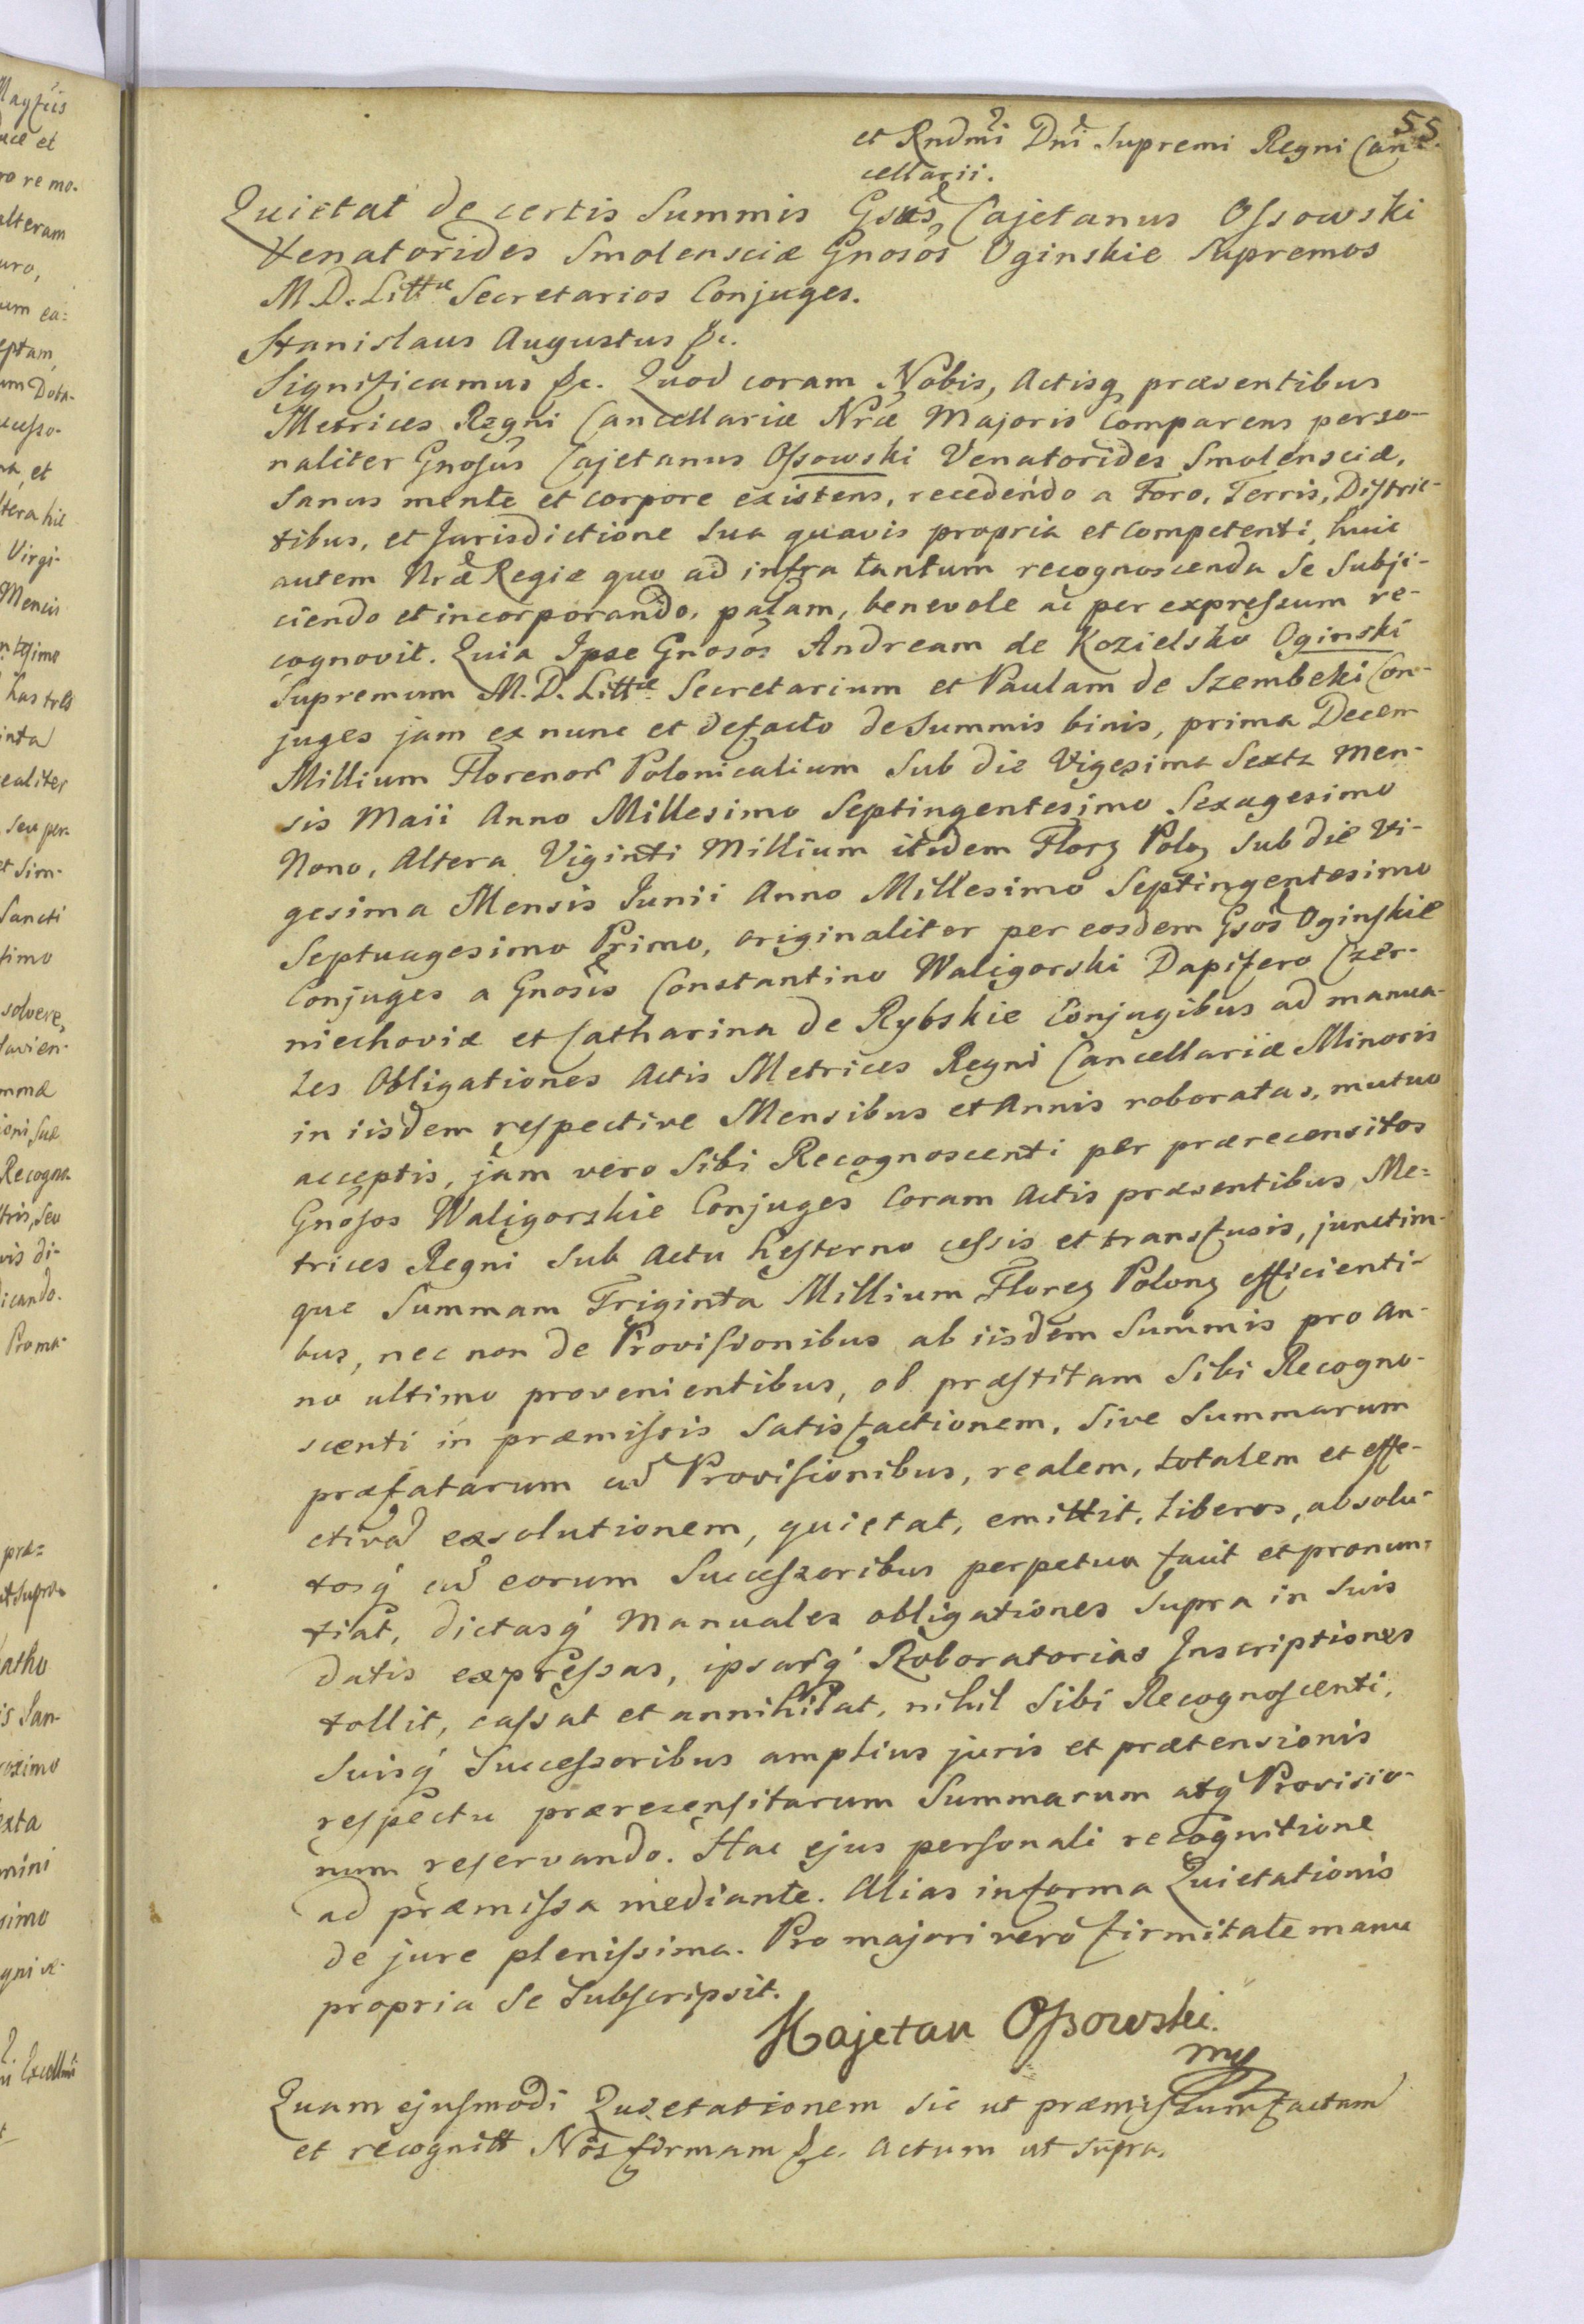 55
et Rndmi Dni Supremi Regni Can-
cellarii.
Quietat de certis Summis Gsus Cajetanus Ossowski
Venatorides Smolensciæ Gnosos Oginskie Supremos
M. D. Littæ Secretarios Conjuges.
Stanislaus Augustus &c.
Significamus &c. Quod coram Nobis, Actisq præsentibus
Metrices Regni Cancellariæ Nræ Majoris Comparens perso-
naliter Gnosus Cajetanus Ossowski Venatorides Smolensciæ,
Sanus mente et corpore existens, recedendo a Foro, Terris, Distric-
tibus, et Jurisdictione Sua quavis propria et Competenti, huic
autem Nræ Regiæ quo ad infra tantum recognoscenda Se Subji-
ciendo et incorporando, palam, benevole ac per expressum re-
cognovit. Quia Ipse Gnosos Andream de Kozielsko Oginski
Supremum M. D. Littæ Secretarium et Paulam de Szembeki Con-
juges jam ex nunc et defacto de Summis binis, prima Decem
Millium Florenor Polonicalium Sub die Vigesima Sexta Men-
sis Maii Anno Millesimo Septingentesimo Sexagesimo
Nono, Altera Viginti Millium itidem Florz Polz Sub die Vi-
gesima Mensis Junii Anno Millesimo Septingentesimo
Septuagesimo Primo, originaliter per eosdem Gsos Oginskie
Conjuges a Gnosis Constantino Waligorski Dapifero Czer-
niechoviæ et Catharina de Rybskie Conjugibus ad manua-
les Obligationes Actis Metrices Regni Cancellariæ Minoris
in iisdem respective Mensibus et Annis roboratas, mutuo
acceptis, jam vero Sibi Recognoscenti per prærecensitos
Gnosos Waligorskie Conjuges Coram Actis præsentibus Me=
trices Regni Sub Actu hesterno cessis et transfusis, junctim-
que Summam Triginta Millium Florez Polonz efficienti-
bus, nec non de Provissionibus ab iisdem Summis pro An-
no ultimo provenientibus, ob præstitam Sibi Recogno-
scenti in præmissis Satisfactionem, Sive Summarum
præfatarum cu Provisionibus, realem, totalem et effe-
ctivã exsolutionem, quietat, emittit, liberos, absolu-
tosq cu eorum Successoribus perpetuo facit et pronun=
tiat, dictasq Manuales obligationes Supra in Suis
datis expressas, ipsarq Roboratorias Inscriptiones
tollit, cassat et annihilat, nihil Sibi Recognoscenti,
Suisq Successoribus amplius juris et prætensionis
respectu prærecensitarum Summarum atq Provisio-
num reservando. Hac ejus personali recognitione
ad præmissa mediante. Alias in forma Quietationis
de jure plenissima. Pro majori vero firmitate manu
propria Se Subscripsit.
Kajetan Ossowski.
mp
Quam ejusmodi Quietationem Sic ut præmissum factam
et recognitt Nos firmam &c. Actum ut Supra.